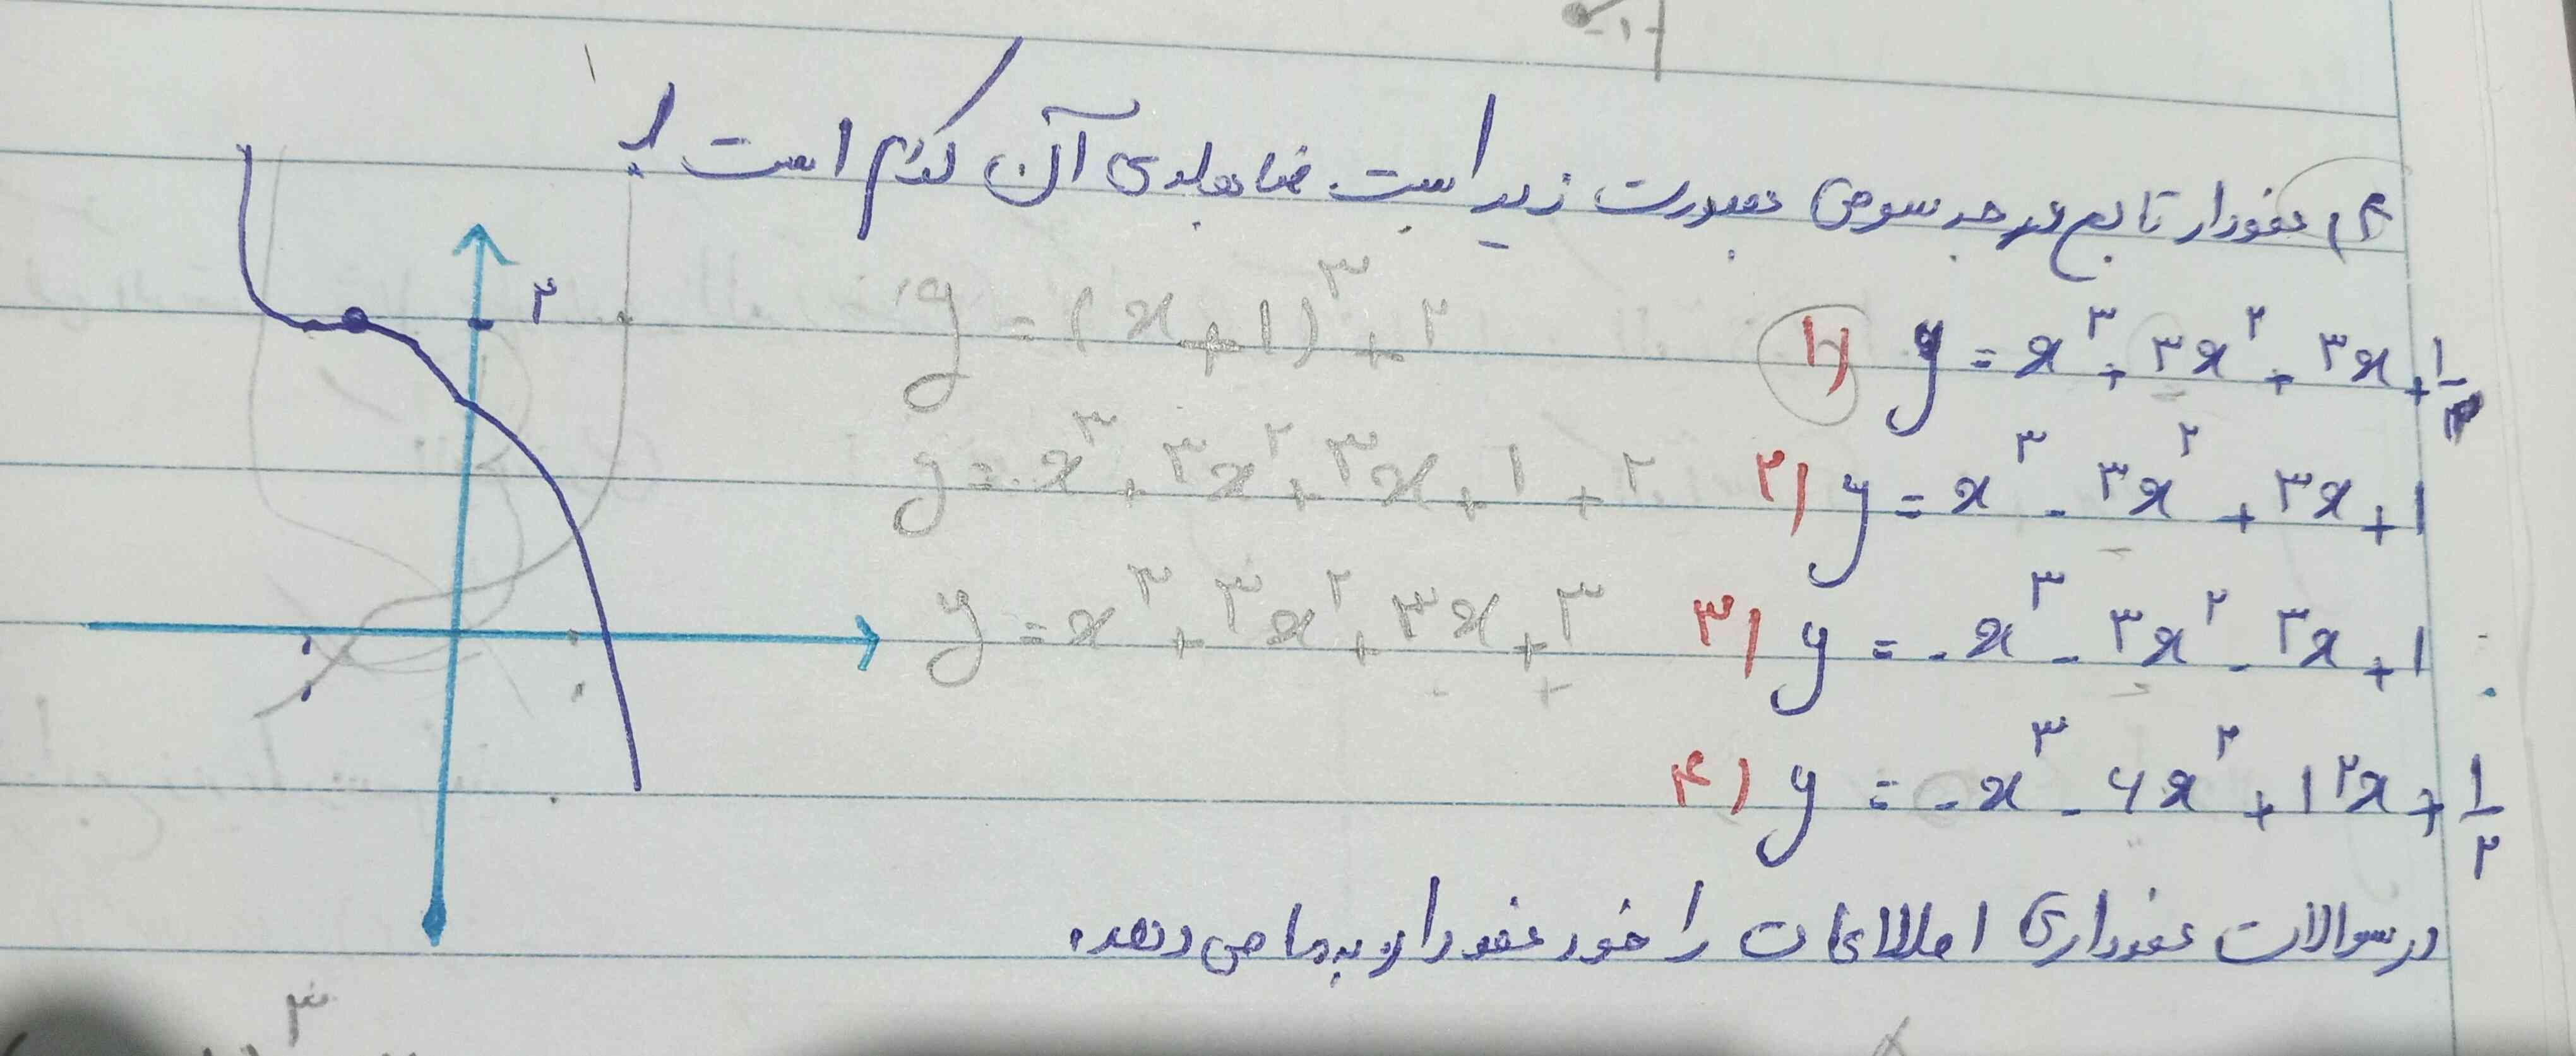 -۱
۴) نمودار تابع درجه سومی بصورت زیر است. ضابطه‌ی آن کدام است؟
۲
y = (x+۱)^۳ + ۲
۱) y = x^۳ + ۳x^۲ + ۳x + ۱/۲
y = x^۳ + ۳x^۲ + ۳x + ۱ + ۲
۲) y = x^۳ - ۳x^۲ + ۳x + ۱
y = x^۳ + ۳x^۲ + ۳x + ۳
۳) y = -x^۳ - ۳x^۲ - ۳x + ۱
۴) y = -x^۳ - ۶x^۲ + ۱۲x + ۱/۲
در سوالات نموداری اطلاعات را خود نمودار به ما می‌دهد.
۳